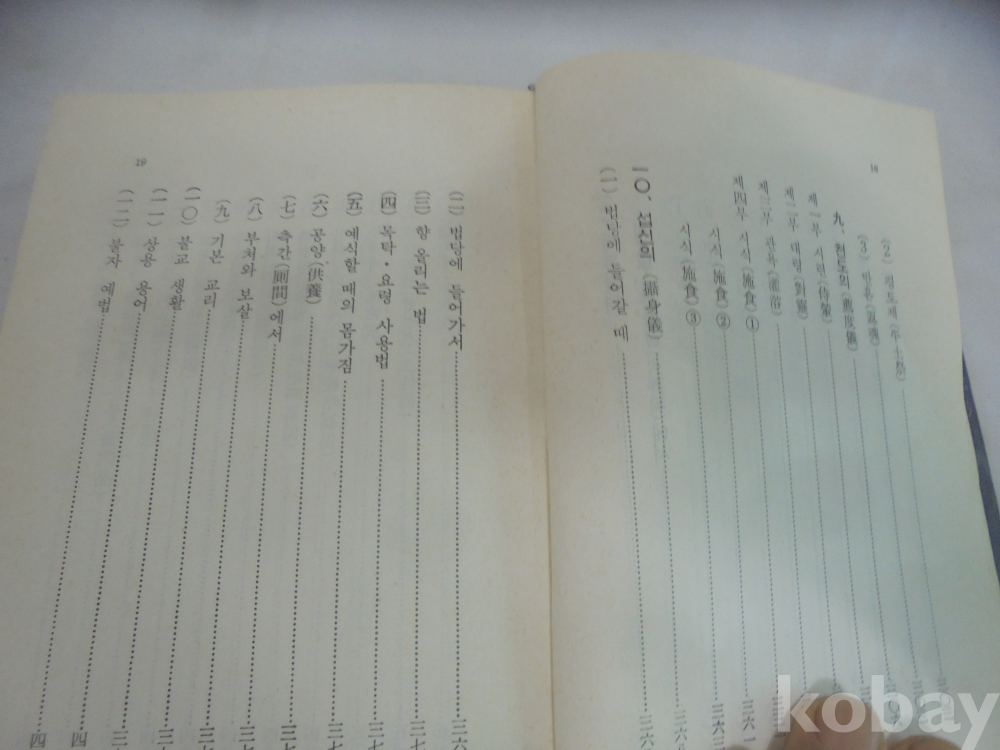 18
(2) 평토제 (平土祭)
(3) 반혼 (返魂)
九、천도의 (薦度儀)
제一부 시련 (侍輦)
제二부 대령 (對靈)
제三부 관욕 (灌浴)
제四부 시식 (施食) ①
시식 (施食) ②
시식 (施食) ③
一○、섭신의 (攝身儀)
(一) 법당에 들어갈 때
19
(二) 법당에 들어가서
(三) 향 올리는 법
(四) 목탁·요령 사용법
(五) 예식할 때의 몸가짐
(六) 공양 (供養)
(七) 측간 (厠間) 에서
(八) 부처와 보살
(九) 기본 교리
(一○) 불교 생활
(一一) 상용 용어
(一二) 불자 예법
kobay